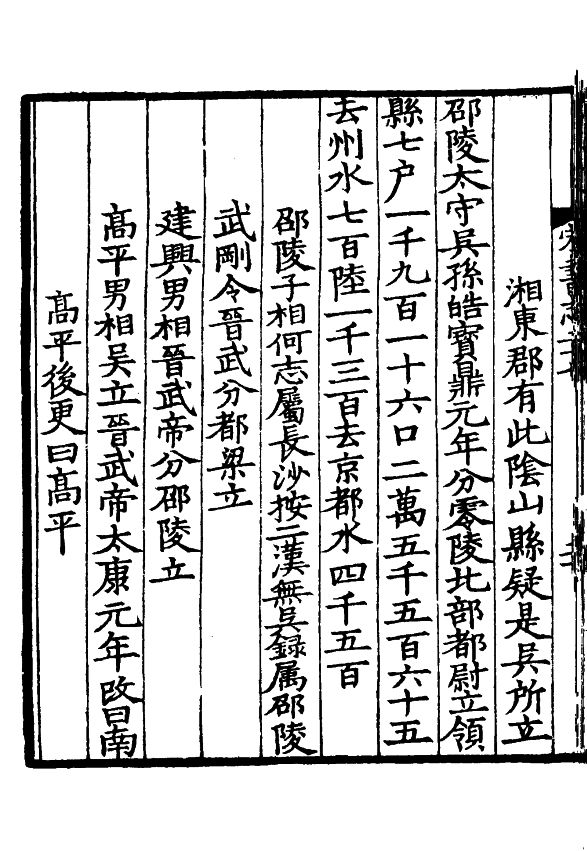 湘東郡有此隂山縣疑是吳所立
邵陵太守吳孫皓寶鼎元年分零陵北部都尉立領
縣七户一千九百一十六口二萬五千五百六十五
去州水七百陸一千三百去京都水四千五百
邵陵子相何志屬長沙按二漢無吳録属邵陵
武剛令晉武分都梁立
建興男相晉武帝分邵陵立
高平男相吳立晉武帝太康元年改曰南
高平後更曰高平